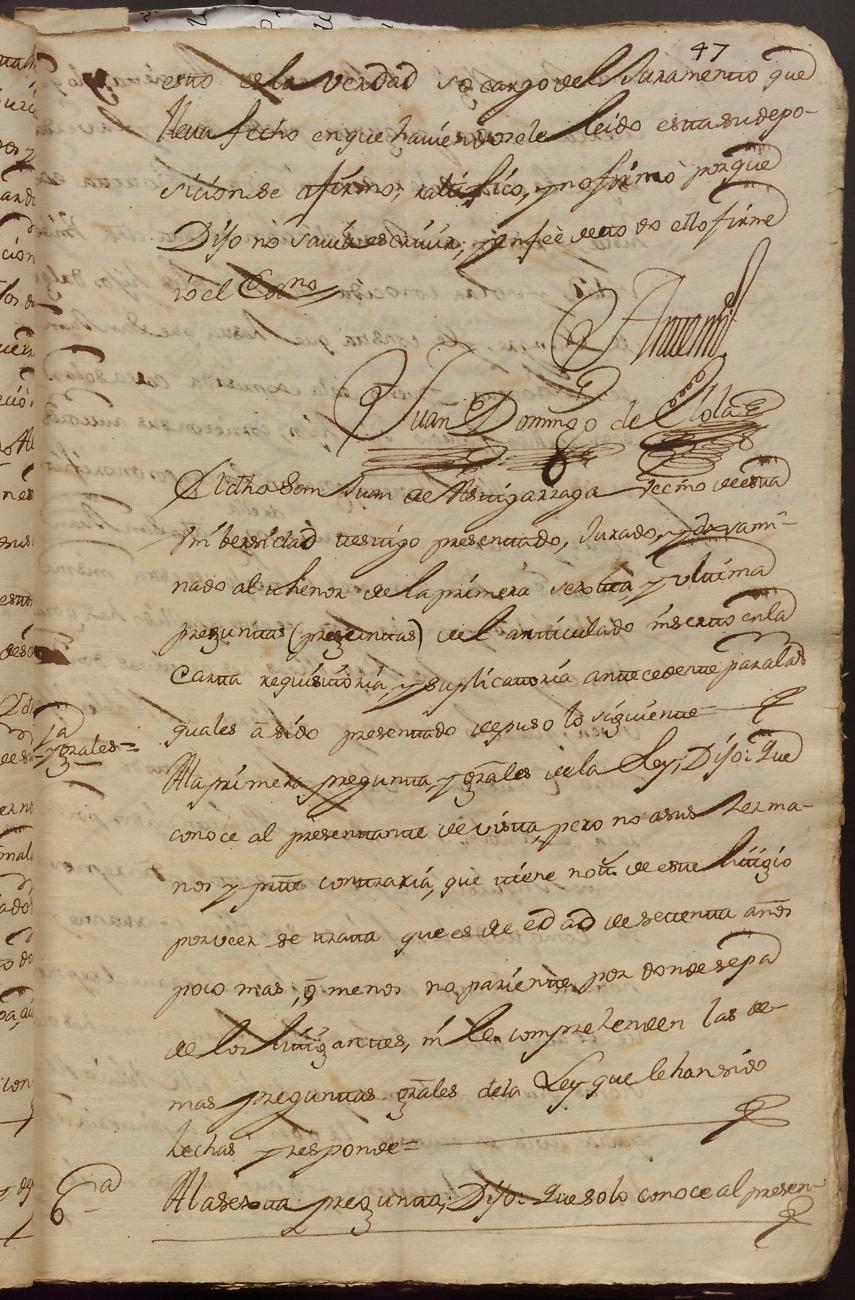 47
esto es la verdad so cargo del Juramento que
lleva fecho en que haviendosele leido esta su depo-
sicion se afirmo, ratifico, y no firmò porque
Dijo no savia escrivir, y en feè de todo ello firme
io el Essno
Antemi
Juan Domingo de Olola
El dho Don Juan de Astigarraga vecino de esta
Vnibersidad testigo presentado, Jurado, y exami-
nado al thenor de la primera sexta, y vltima
preguntas (preguntas) del articulado inserto en la
Carta requisitoria, y suplicatoria antecedente para las
quales à sido presentado depuso lo siguiente
1a
y grales=
A la primera pregunta, y grãles de la Ley; Dijo: Que
conoce al presentante de vista, pero no a sus herma-
nos y pte contraria, que tiene nota. de este litigio
por veer se trata que es de edad de setenta años
poco mas, ò menos no pariente, por donde sepa
de los litigantes, ni le comprehenden las de-
mas preguntas grãles de la Ley que le han sido
hechas y responde=
6a
A la sexta pregunta; Dijo: Que solo conoce al presen-